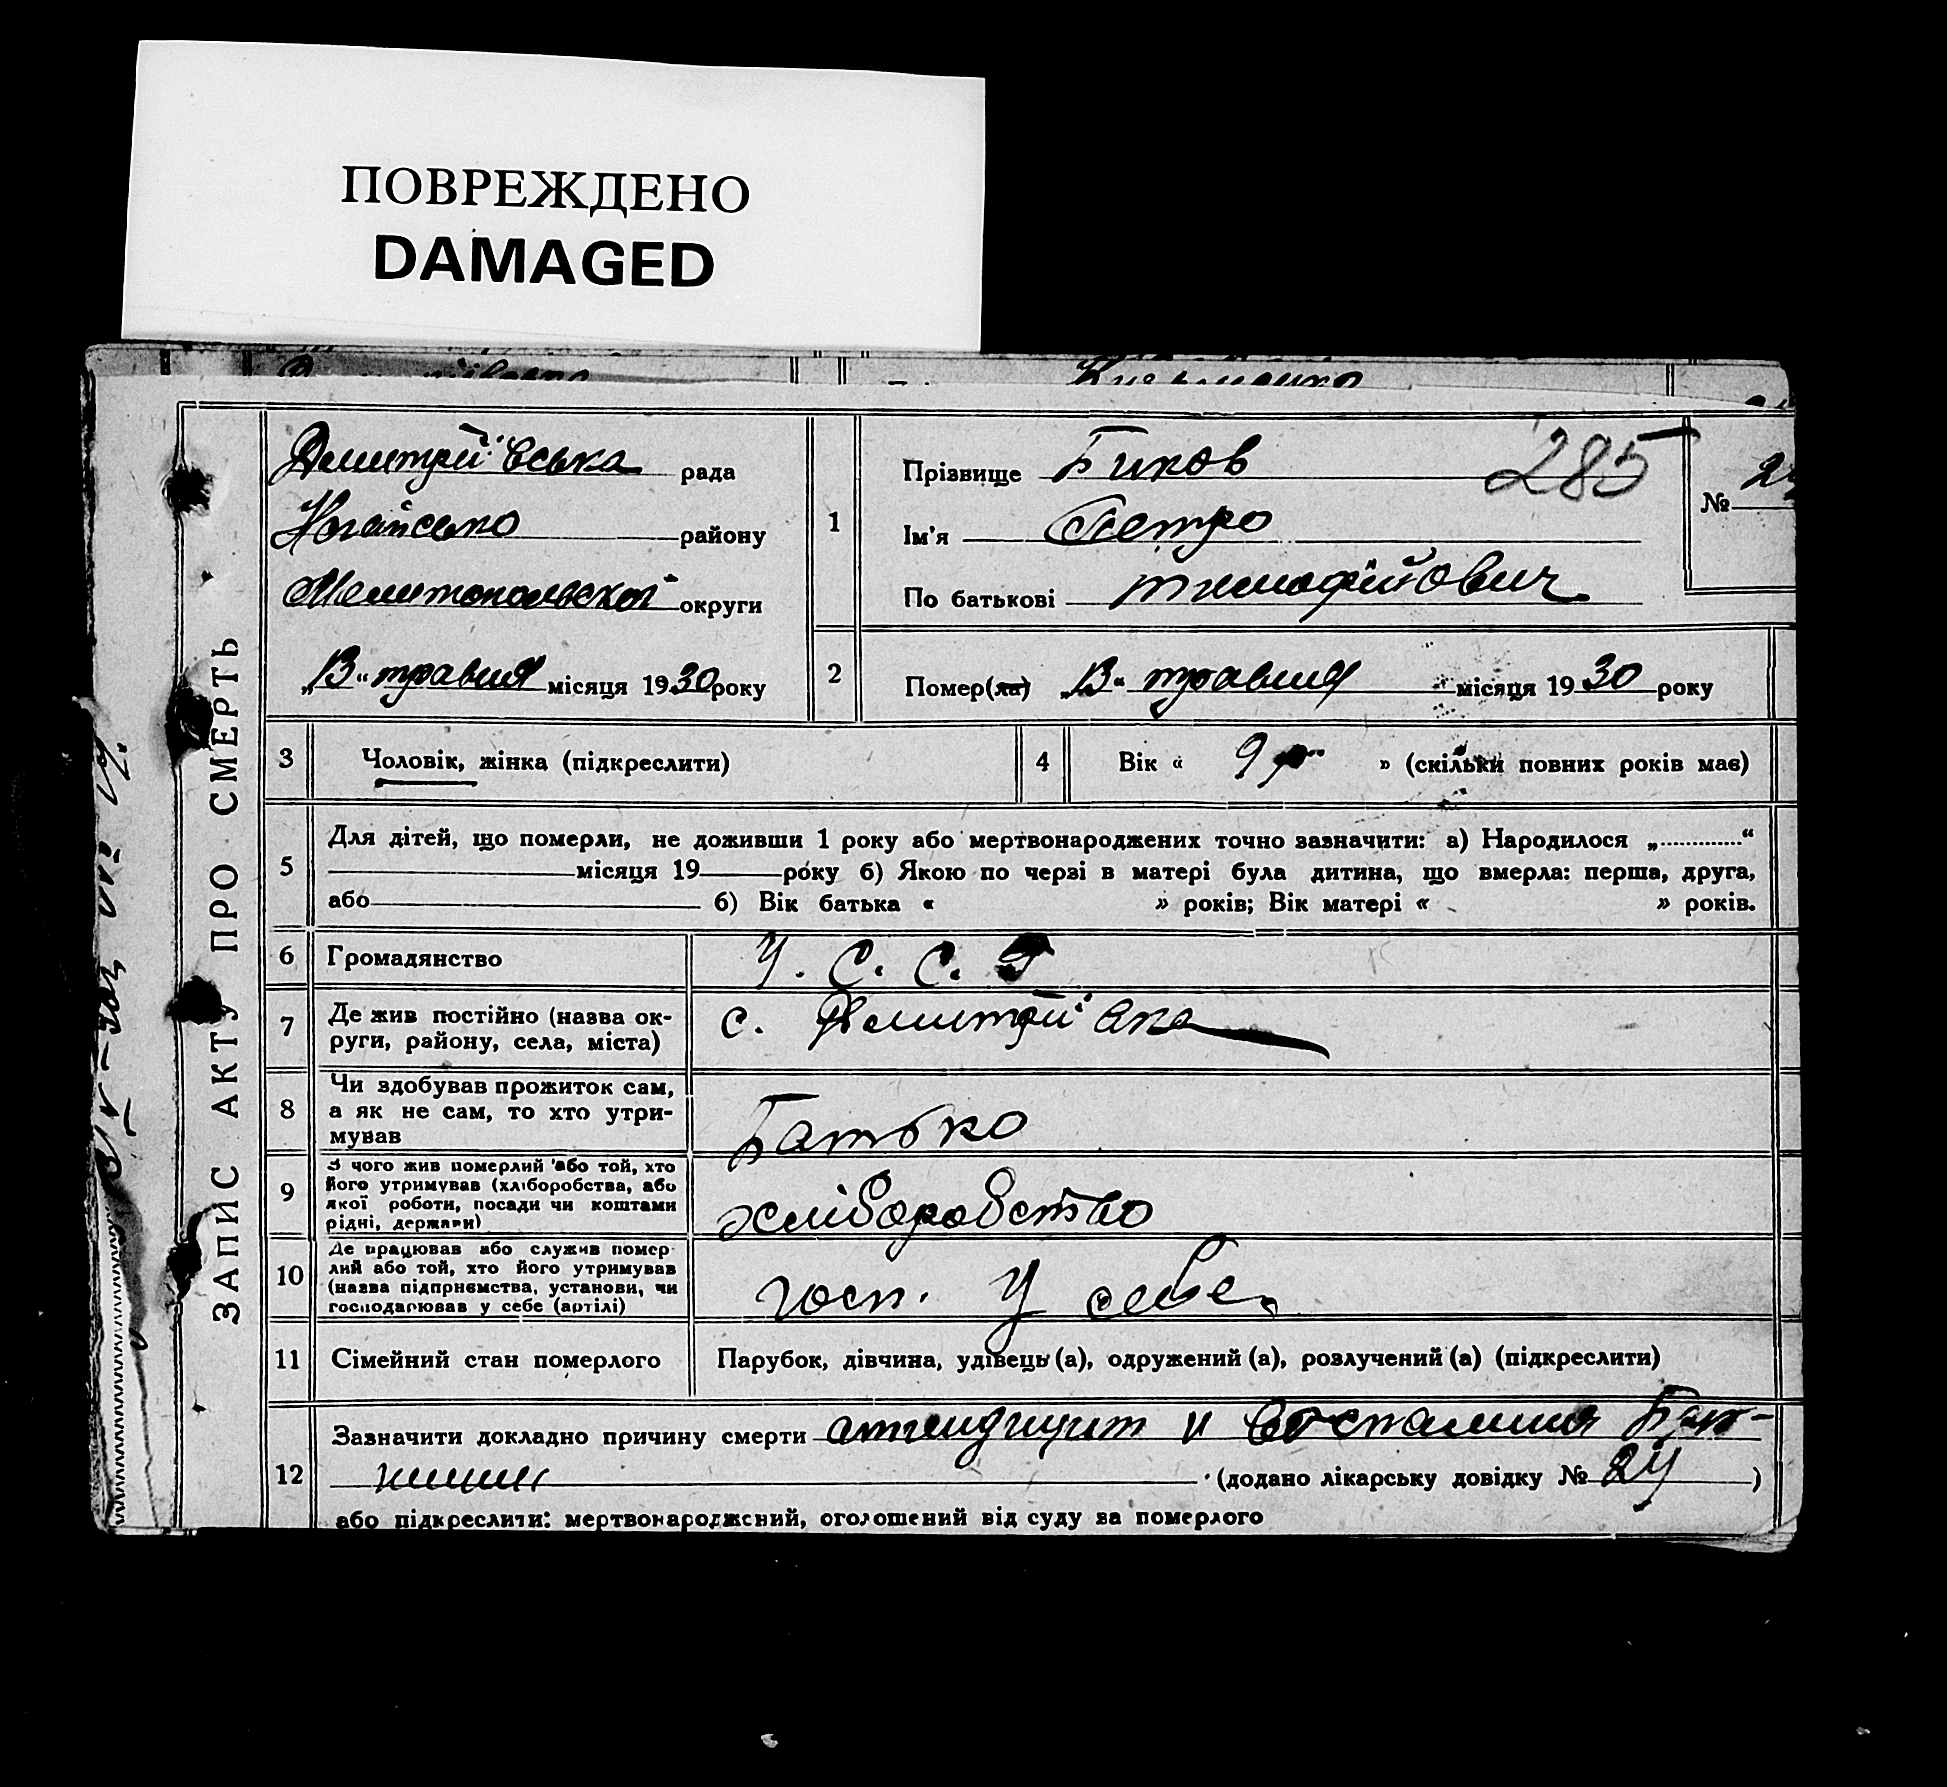 ПОВРЕЖДЕНО
DAMAGED
ЗАПИС АКТУ ПРО СМЕРТЬ
Дмитрії́вська рада
Ногайсько району
Мелитопольскої округи
„13“ травня місяця 1930 року
1
Прізвище Биков
285
№
Ім'я Петро
По батькові Тимофійович
2
Помер(ла) „13“ травня місяця 1930 року
3 Чоловік, жінка (підкреслити)
4 Вік « 9 р » (скільки повних років має)
5 Для дітей, що померли, не доживши 1 року або мертвонароджених точно зазначити: а) Народилося „..............“
місяця 19 року б) Якою по черзі в матері була дитина, що вмерла: перша, друга,
або б) Вік батька « » років; Вік матері « » років.
6 Громадянство У. С. С. Р
7 Де жив постійно (назва ок-
руги, району, села, міста) с. Дмитрії́вка
8 Чи здобував прожиток сам,
а як не сам, то хто утри-
мував Батько
9 З чого жив померлий або той, хто
його утримував (хліборобства, або
якої роботи, посади чи коштами
рідні, держави) хліборобство
10 Де працював або служив помер-
лий або той, хто його утримував
(назва підприємства, установи, чи
господарював у себе (артілі) госп. У себе.
11 Сімейний стан померлого Парубок, дівчина, удівець (а), одружений (а), розлучений (а) (підкреслити)
12 Зазначити докладно причину смерти аппендицит и воспаления Брю-
шини (додано лікарську довідку № 24)
або підкреслити: мертвонароджений, оголошений від суду за померлого